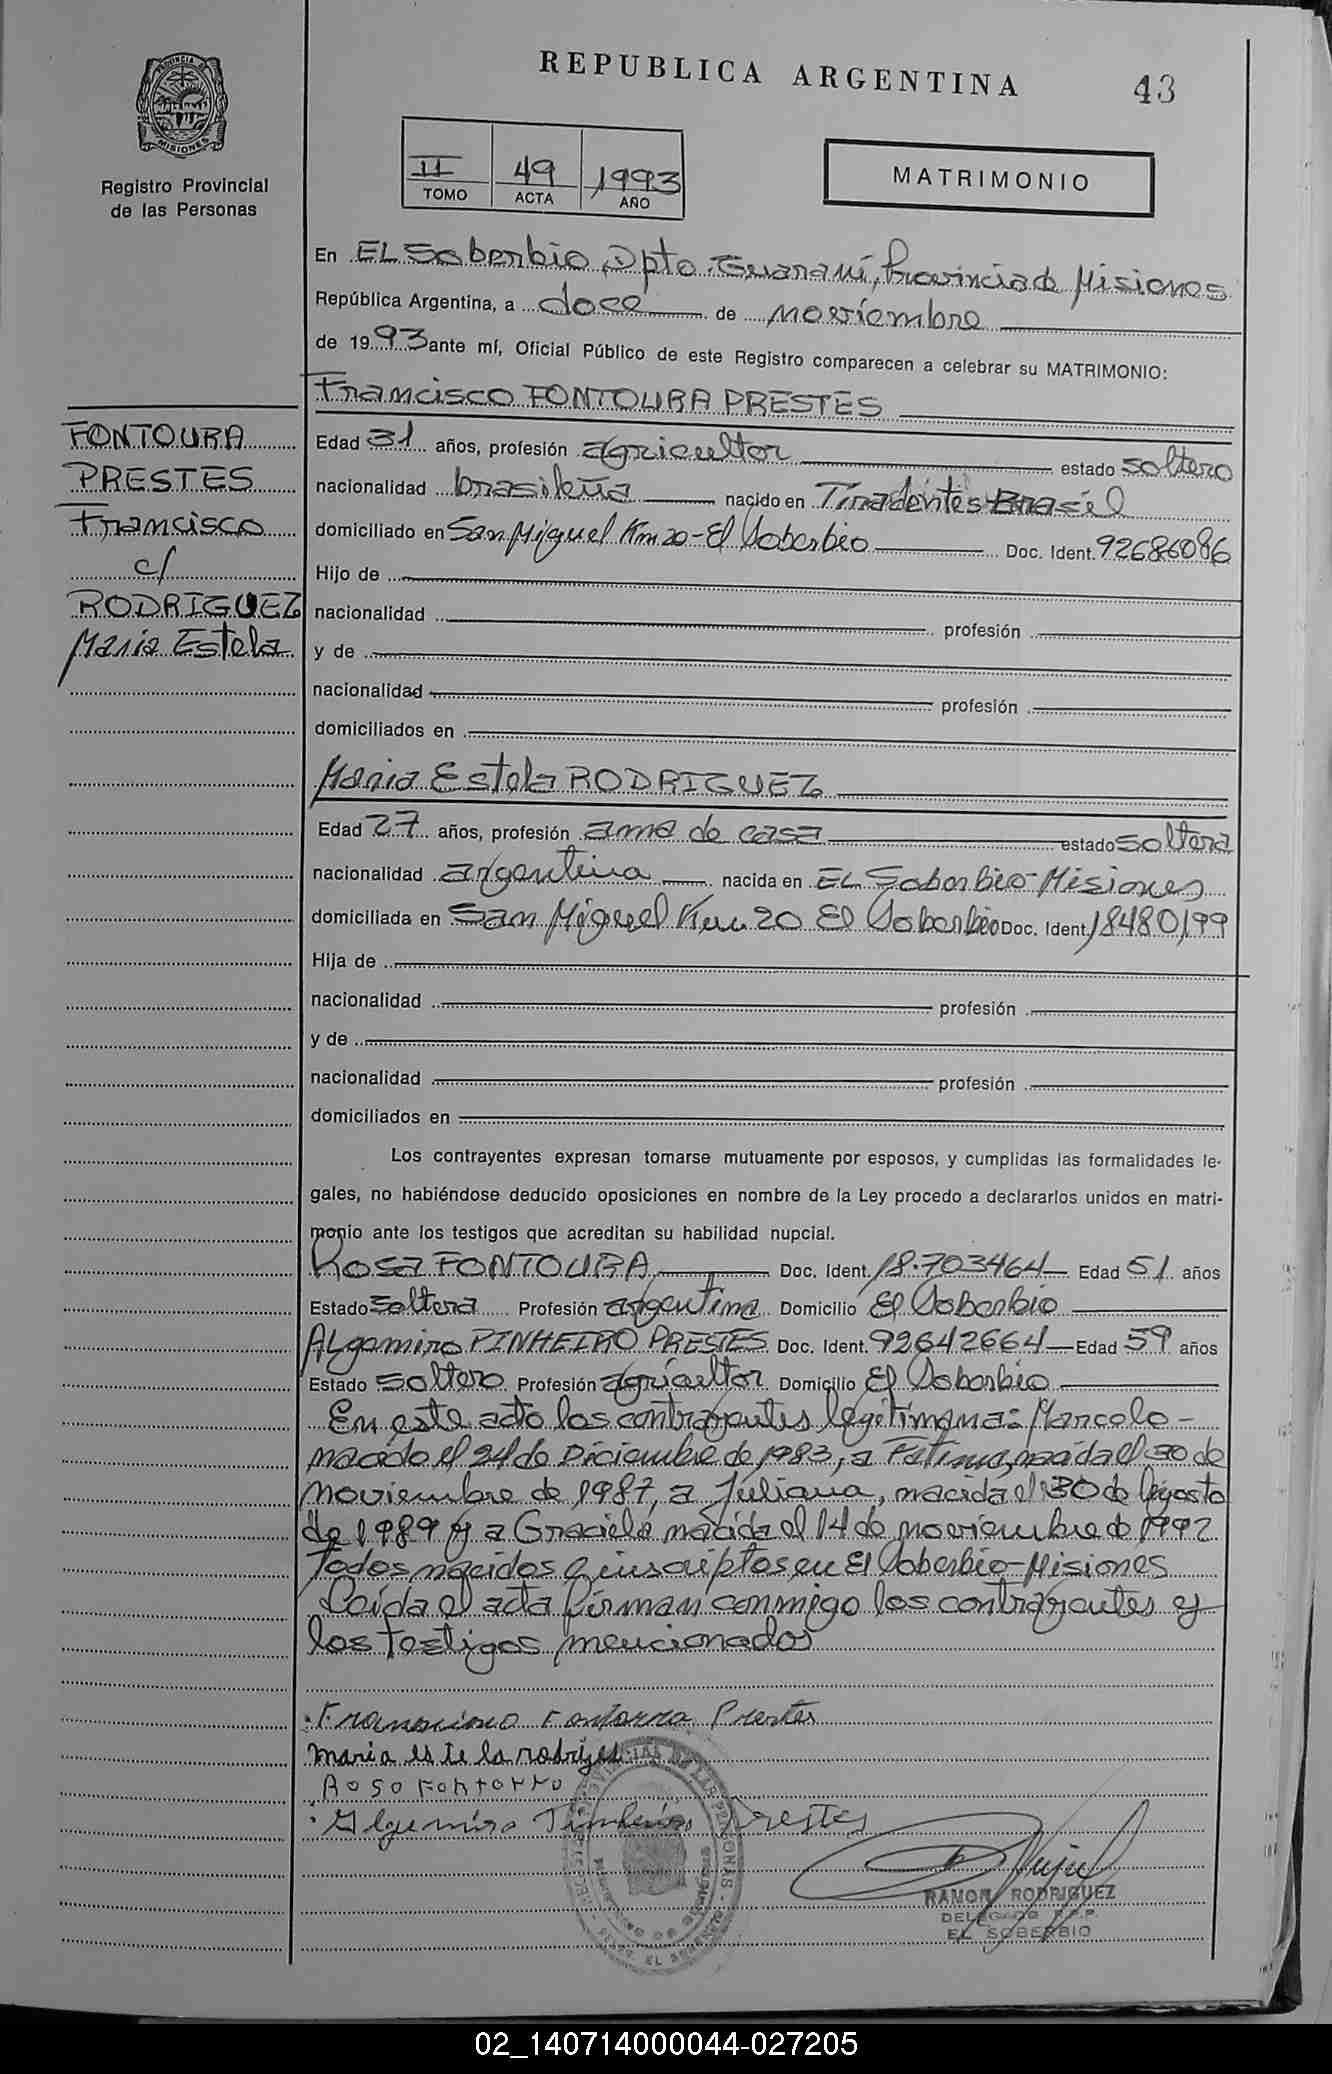 REPUBLICA ARGENTINA
43
PROVINCIA DE
MISIONES
Registro Provincial
de las Personas
II 49 1993
TOMO ACTA AÑO
MATRIMONIO
En EL Soberbio, Dpto. Guaraní, Provincia de Misiones
República Argentina, a doce de noviembre
de 1993 ante mí, Oficial Público de este Registro comparecen a celebrar su MATRIMONIO:
Francisco FONTOURA PRESTES
Edad 31 años, profesión agricultor estado soltero
nacionalidad brasileña nacido en Tiradentes-Brasil
domiciliado en San Miguel Km 20-El Soberbio Doc. Ident. 92686086
Hijo de
nacionalidad profesión
y de
nacionalidad profesión
domiciliados en
FONTOURA
PRESTES
Francisco
c/
RODRIGUEZ
Maria Estela
Maria Estela RODRIGUEZ
Edad 27 años, profesión ama de casa estado soltera
nacionalidad argentina nacida en EL Soberbio-Misiones
domiciliada en San Miguel Km 20 El Soberbio Doc. Ident. 18480199
Hija de
nacionalidad profesión
y de
nacionalidad profesión
domiciliados en
Los contrayentes expresan tomarse mutuamente por esposos, y cumplidas las formalidades le-
gales, no habiéndose deducido oposiciones en nombre de la Ley procedo a declararlos unidos en matri-
monio ante los testigos que acreditan su habilidad nupcial.
Rosa FONTOURA Doc. Ident. 18.703464 Edad 51 años
Estado soltera Profesión argentina Domicilio El Soberbio
ALgemiro PINHEIRO PRESTES Doc. Ident. 92642664 Edad 59 años
Estado soltero Profesión agricultor Domicilio El Soberbio
En este acto los contrayentes legitiman a: Marcelo-
nacido el 24 de Diciembre de 1983, a Fatima, nacida el 30 de
noviembre de 1987, a Juliana, nacida el 30 de Agosto
de 1989 y a Graciela nacida el 14 de noviembre de 1992
Todos nacidos e inscriptos en El Soberbio-Misiones
Leída el acta firman conmigo los contrayentes y
los testigos mencionados
Francisco Fontorra Prestes
maria es te la rodriges
Rosa Fontorro
Algemiro Pinheiro Prestes
RAMON RODRIGUEZ
DELEGADO R.P.P.
EL SOBERBIO
02_140714000044-027205